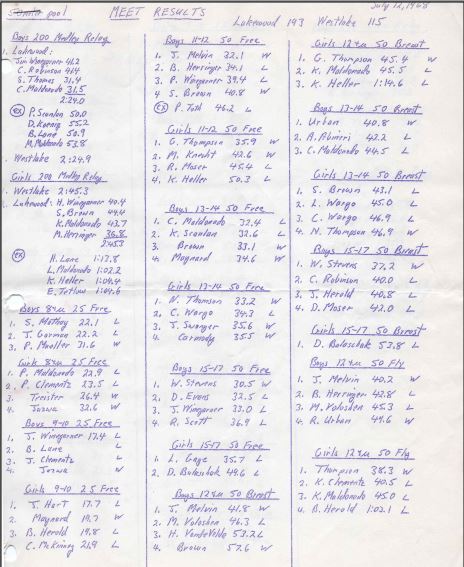 pool MEET RESULTS July 12, 1968
Lakewood 193 Westlake 115
Boys 200 Medley Relay
1. Lakewood:
Jim Winegarner 41.2
C. Robinson 41.4
S. Thomas 31.4
C. Maldonado 31.5
2:24.0
(ex) P. Scanlon 50.0
D. Koenig 55.2
B. Lane 50.9
M. Maldonado 53.8
2. Westlake 2:24.9
Girls 200 Medley Relay
1. Westlake 2:45.3
2. Lakewood: H. Winegarner 40.4
S. Brown 44.4
K. Maldonado 43.7
M. Herringer 36.8
2:45.3
(ex) H. Lane 1:13.8
L. Maldonado 1:02.2
K. Heller 1:04.4
E. Tatlow 1:04.6
Boys 8+u 25 Free
1. S. Mathay 22.1 L
2. J. Gorman 22.2 L
3. P. Moeller 31.6 W
Girls 8+u 25 Free
1. P. Maldonado 22.9 L
2. P. Clementz 23.5 L
3. Treister 26.4 W
4. Juzwa 32.6 W
Boys 9-10 25 Free
1. J. Winegarner 17.4 L
2. B. Lane L
3. J. Clementz L
4. Juzwa W
Girls 9-10 25 Free
1. J. Hart 17.7 L
2. Maynard 19.7 W
3. B. Herold 19.8 L
C. McKinney 21.9 L
Boys 11-12 50 Free
1. J. Melvin 32.1 W
2. B. Herringer 34.1 L
3. P. Winegarner 39.4 L
4. S. Brown 40.8 W
(Ex) P. Toth 46.2 L
Girls 11-12 50 Free
1. G. Thompson 35.9 W
2. M. Knecht 42.6 W
3. R. Moser 45.4 L
4. K. Heller 50.3 L
Boys 13-14 50 Free
1. C. Maldonado 32.4 L
2. K. Scanlon 32.6 L
3. Brown 33.1 W
4. Maynard 34.6 W
Girls 13-14 50 Free
1. N. Thomson 33.2 W
2. C. Wargo 34.3 L
3. J. Swanger 35.6 W
4. Carmody 35.5 W
Boys 15-17 50 Free
1. W. Stevens 30.5 W
2. D. Evans 32.5 L
3. J. Winegarner 33.0 L
4. R. Scott 36.9 L
Girls 15-17 50 Free
1. L. Gage 35.7 L
2. D. Balaschak 49.6 L
Boys 12+u 50 Breast
1. J. Melvin 41.8 W
2. M. Voloshen 46.3 L
3. H. VandeVelde 53.2 L
4. Brown 57.6 W
Girls 12+u 50 Breast
1. G. Thompson 45.4 W
2. K. Maldonado 45.5 L
3. K. Heller 1:14.6 L
Boys 13-14 50 Breast
1. Urban 40.8 W
2. 42.2 L
3. C. Maldonado 44.5 L
Girls 13-14 50 Breast
1. S. Brown 43.1 L
2. L. Wargo 45.0 L
3. C. Wargo 46.9 L
4. N. Thompson 46.9 W
Boys 15-17 50 Breast
1. W. Stevens 37.2 W
2. C. Robinson 40.0 L
3. J. Herold 40.8 L
4. D. Moser 42.0 L
Girls 15-17 50 Breast
1. D. Balaschak 53.8 L
Boys 12+u 50 Fly
1. J. Melvin 40.2 W
2. B. Herringer 42.8 L
3. M. Voloshen 45.3 L
4. R. Urban 49.6 W
Girls 12+u 50 Fly
1. Thompson 38.3 W
2. K. Clementz 40.5 L
3. K. Maldonado 45.0 L
4. B. Herold 1:02.1 L